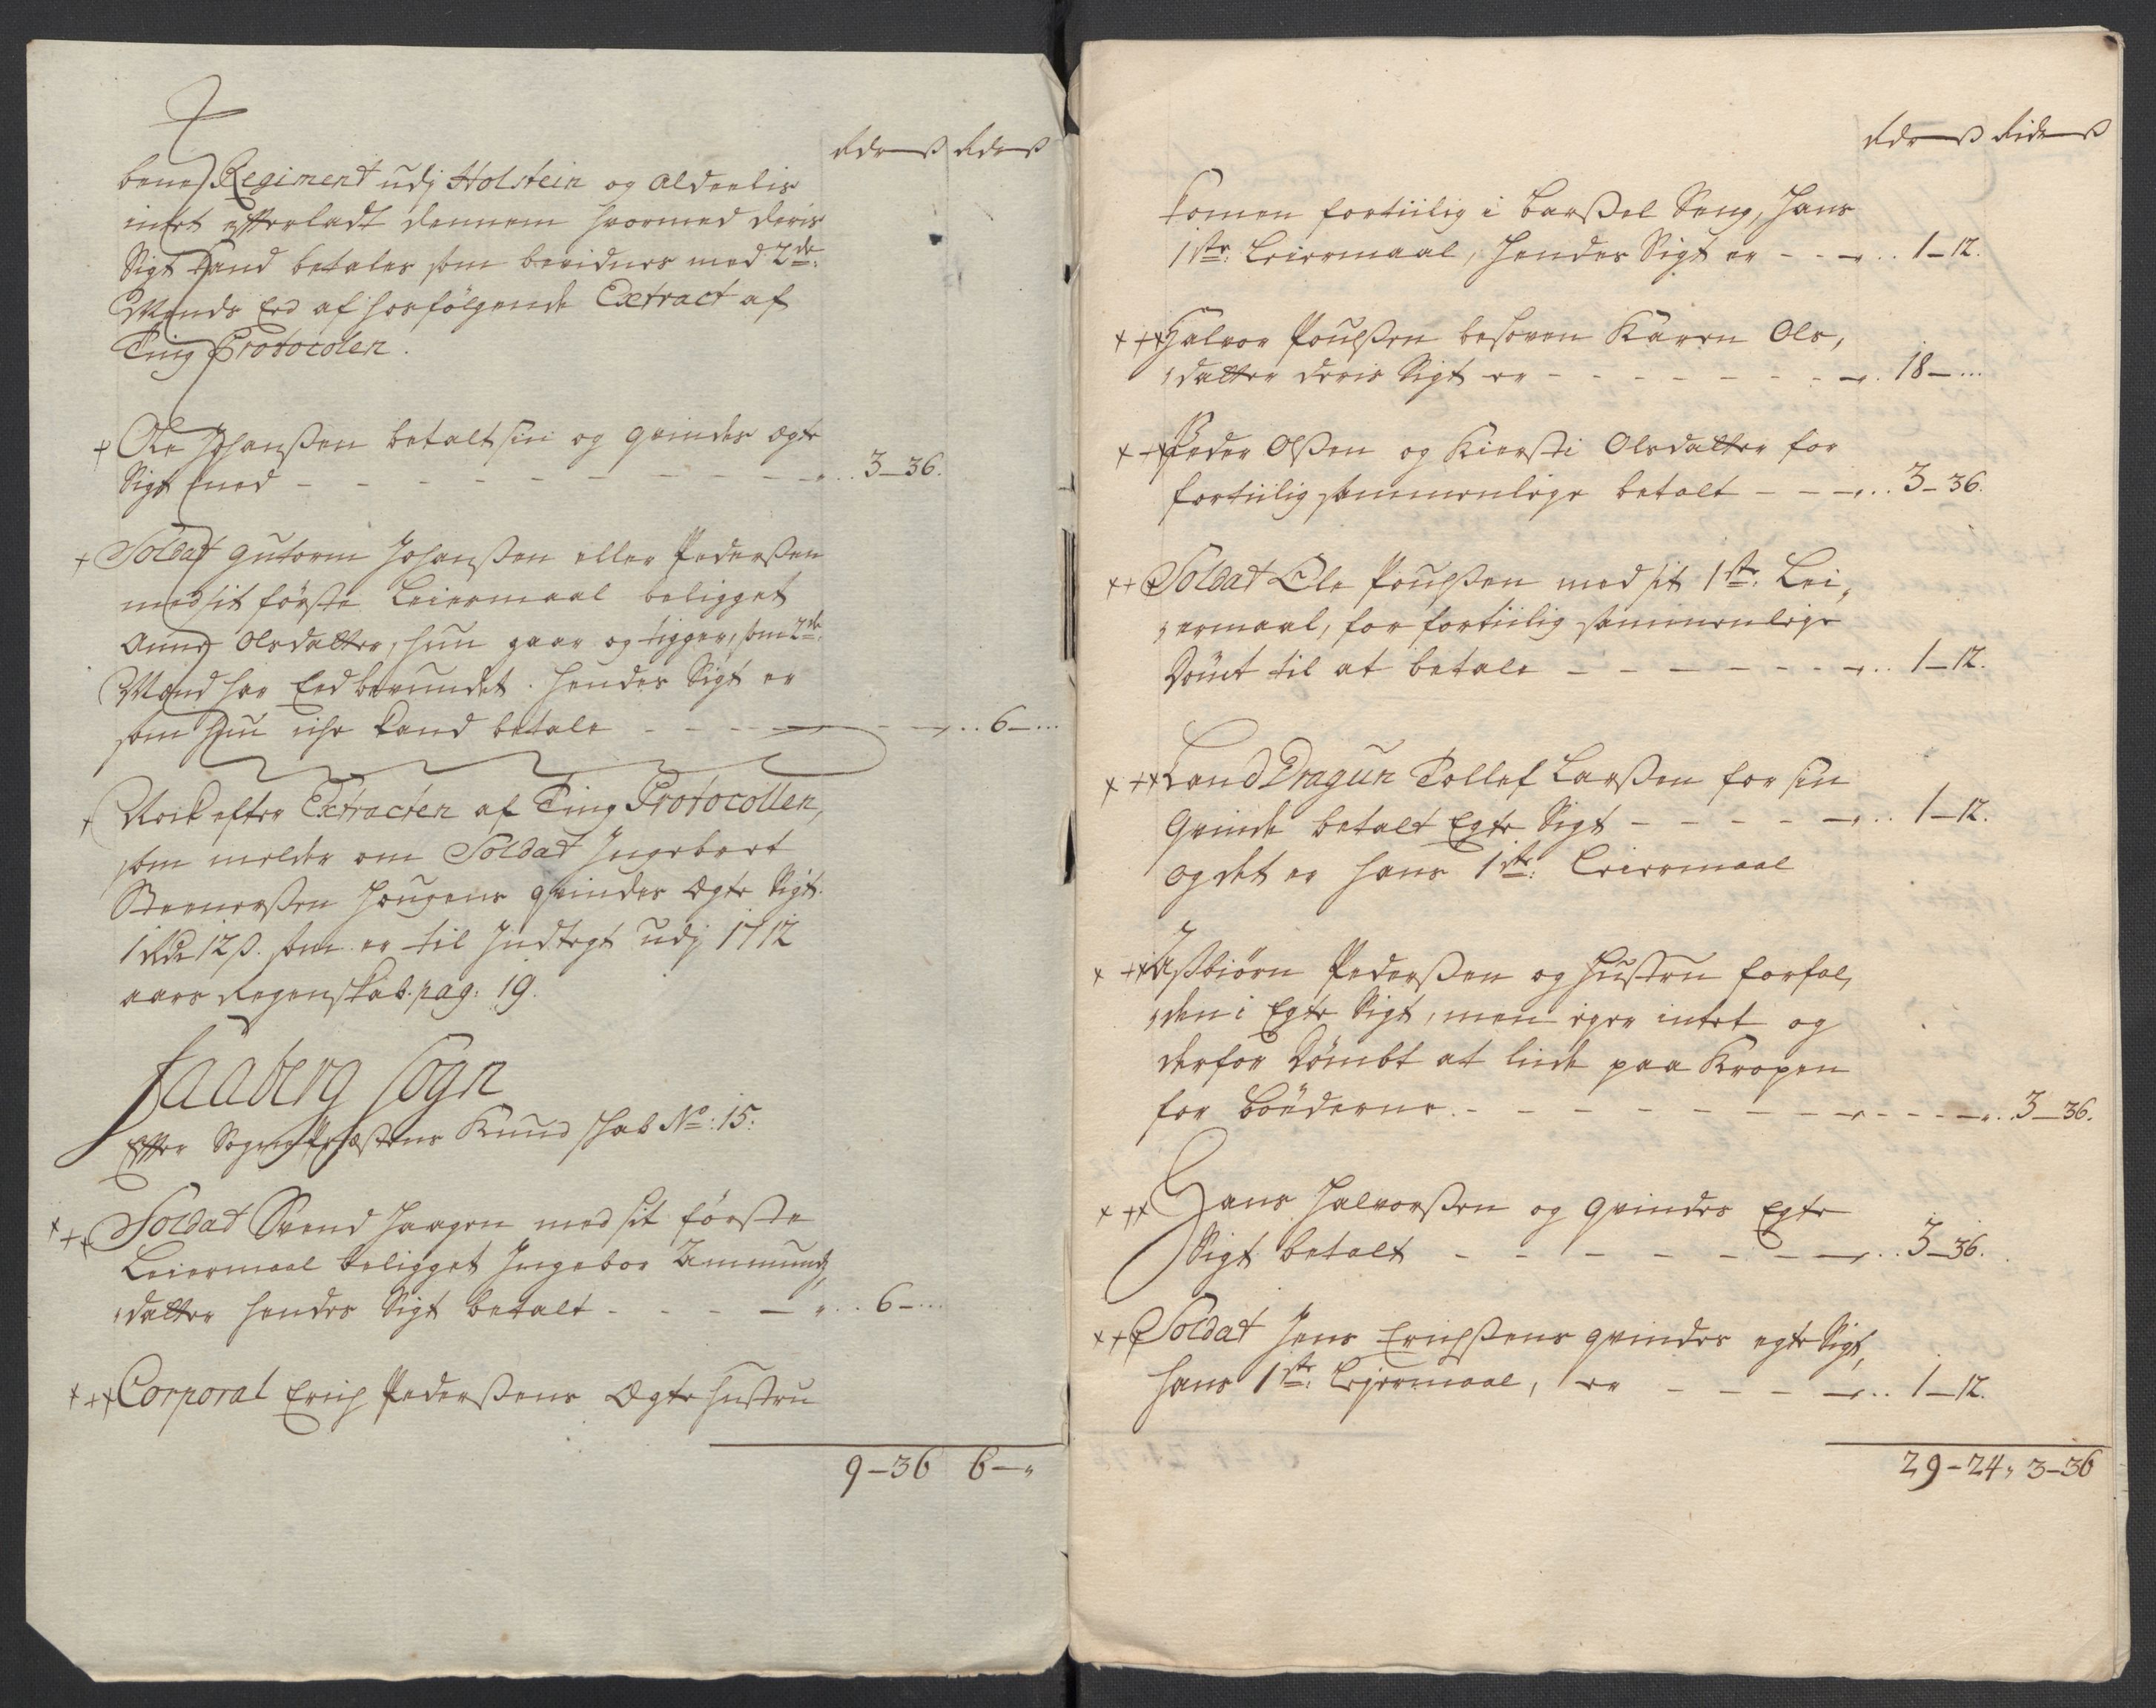 Rdr ß Rdr ß
benes Regiment udj Holstein og Aldeelis
intet efterladt dennem hvormed deris
Sigt kand betales som bevidnes med 2de:
Mends Eed af hosfölgende Extract af
Ting Protocolen.
+ Ole Johanßen betalt sin og Qvindes Egte
Sigt med - - - - - - - - - 3-36.
+ Soldat Gutorm Johanßen eller Pederßen
med sit förste Leiermaal beligget
Anne Olsdatter, hun gaar og tigger, som 2de:
Mænd har Eed bevundet. hendes Sigt er
som hun iche kand betale - - - 6-...
+ Nock efter Extracten af Ting Protocollen,
som melder om Soldat Ingebret
Steenerßen Haugens Qvindes Egte Sigt.
1 Rdr 12 ß. som er til Indtegt udj 1712
aars Regenskab. pag: 19.
Faaberg Sogn
Efter Sogne Præstens Kundskab No: 15:
+++ Soldat Svend Haagen med sit förste
Leiermaal beligget Ingebor Ammunds,
datter hendes Sigt betalt - - - - 6-...
+++ Corporal Erich Pederßens Egte Hustru
9-36 6-"
Rdr ß Ridr ß
komen fortiilig i Barßel Seng, Hans
1ste: Leiermaal, hendes Sigt er - - - 1-12.
+++ Halvor Poulßen besoven Karen Ols,
datter deris Sigt er - - - - - - - 18-...
+++ Peder Olßen og Kiersti Olsdatter for
fortiilig sammenleye betalt - - - 3-36.
+++ Soldat Ole Poulßen med sit 1ste: Lei,
ermaal, for fortiilig sammenleye
Dömt til at betale - - - - - - - 1-12.
+++ Land Dragun Tollef Larßen for sin
Qvinde betalt Egte Sigt - - - - - 1-12.
og det er hans 1ste: Leiermaal
+++ Aßbiörn Pederßen og Hustru forfal,
den i Egte Sigt, men eyer intet og
derfor Dömbt at lide paa Kropen
for Böderne. - - - - - - - - - - 3-36.
+++ Hans Halvorßen og Qvindes Egte
Sigt betalt - - - - - - - 3-36.
+++ Soldat Jens Erichßens Qvindes egte Sigt,
hans 1ste: Lejermaal, er - - - - 1-12.
29-24" 3-36